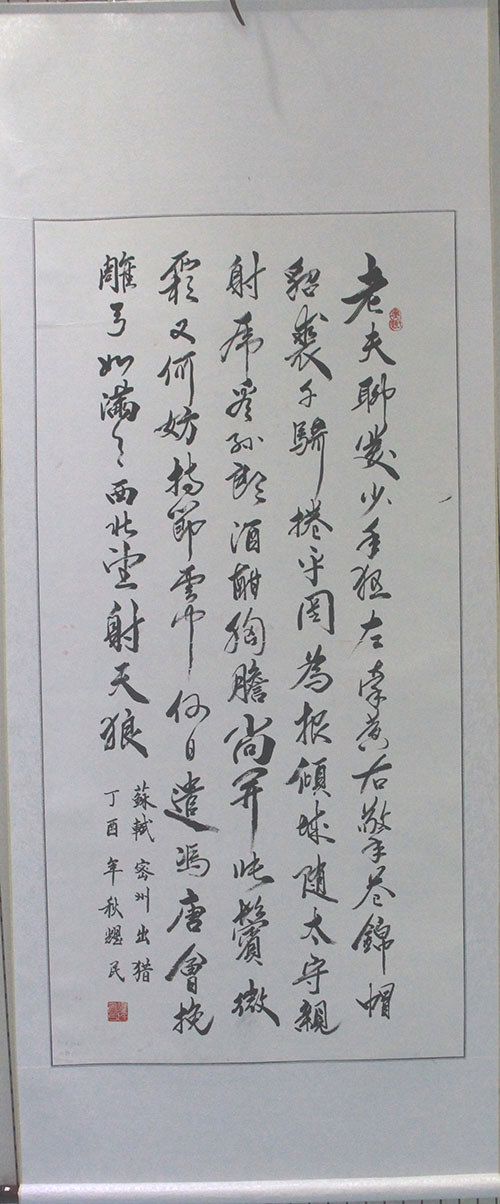 老夫聊发少年狂左牵黄右擎苍錦帽
貂裘千騎捲平岡為报傾城随太守親
射虎看孙郎酒酣胸膽尚开张鬢微
霜又何妨持節雲中何日遣馮唐會挽
雕弓如滿月西北望射天狼
蘇軾 密州出猎
丁酉年秋 民